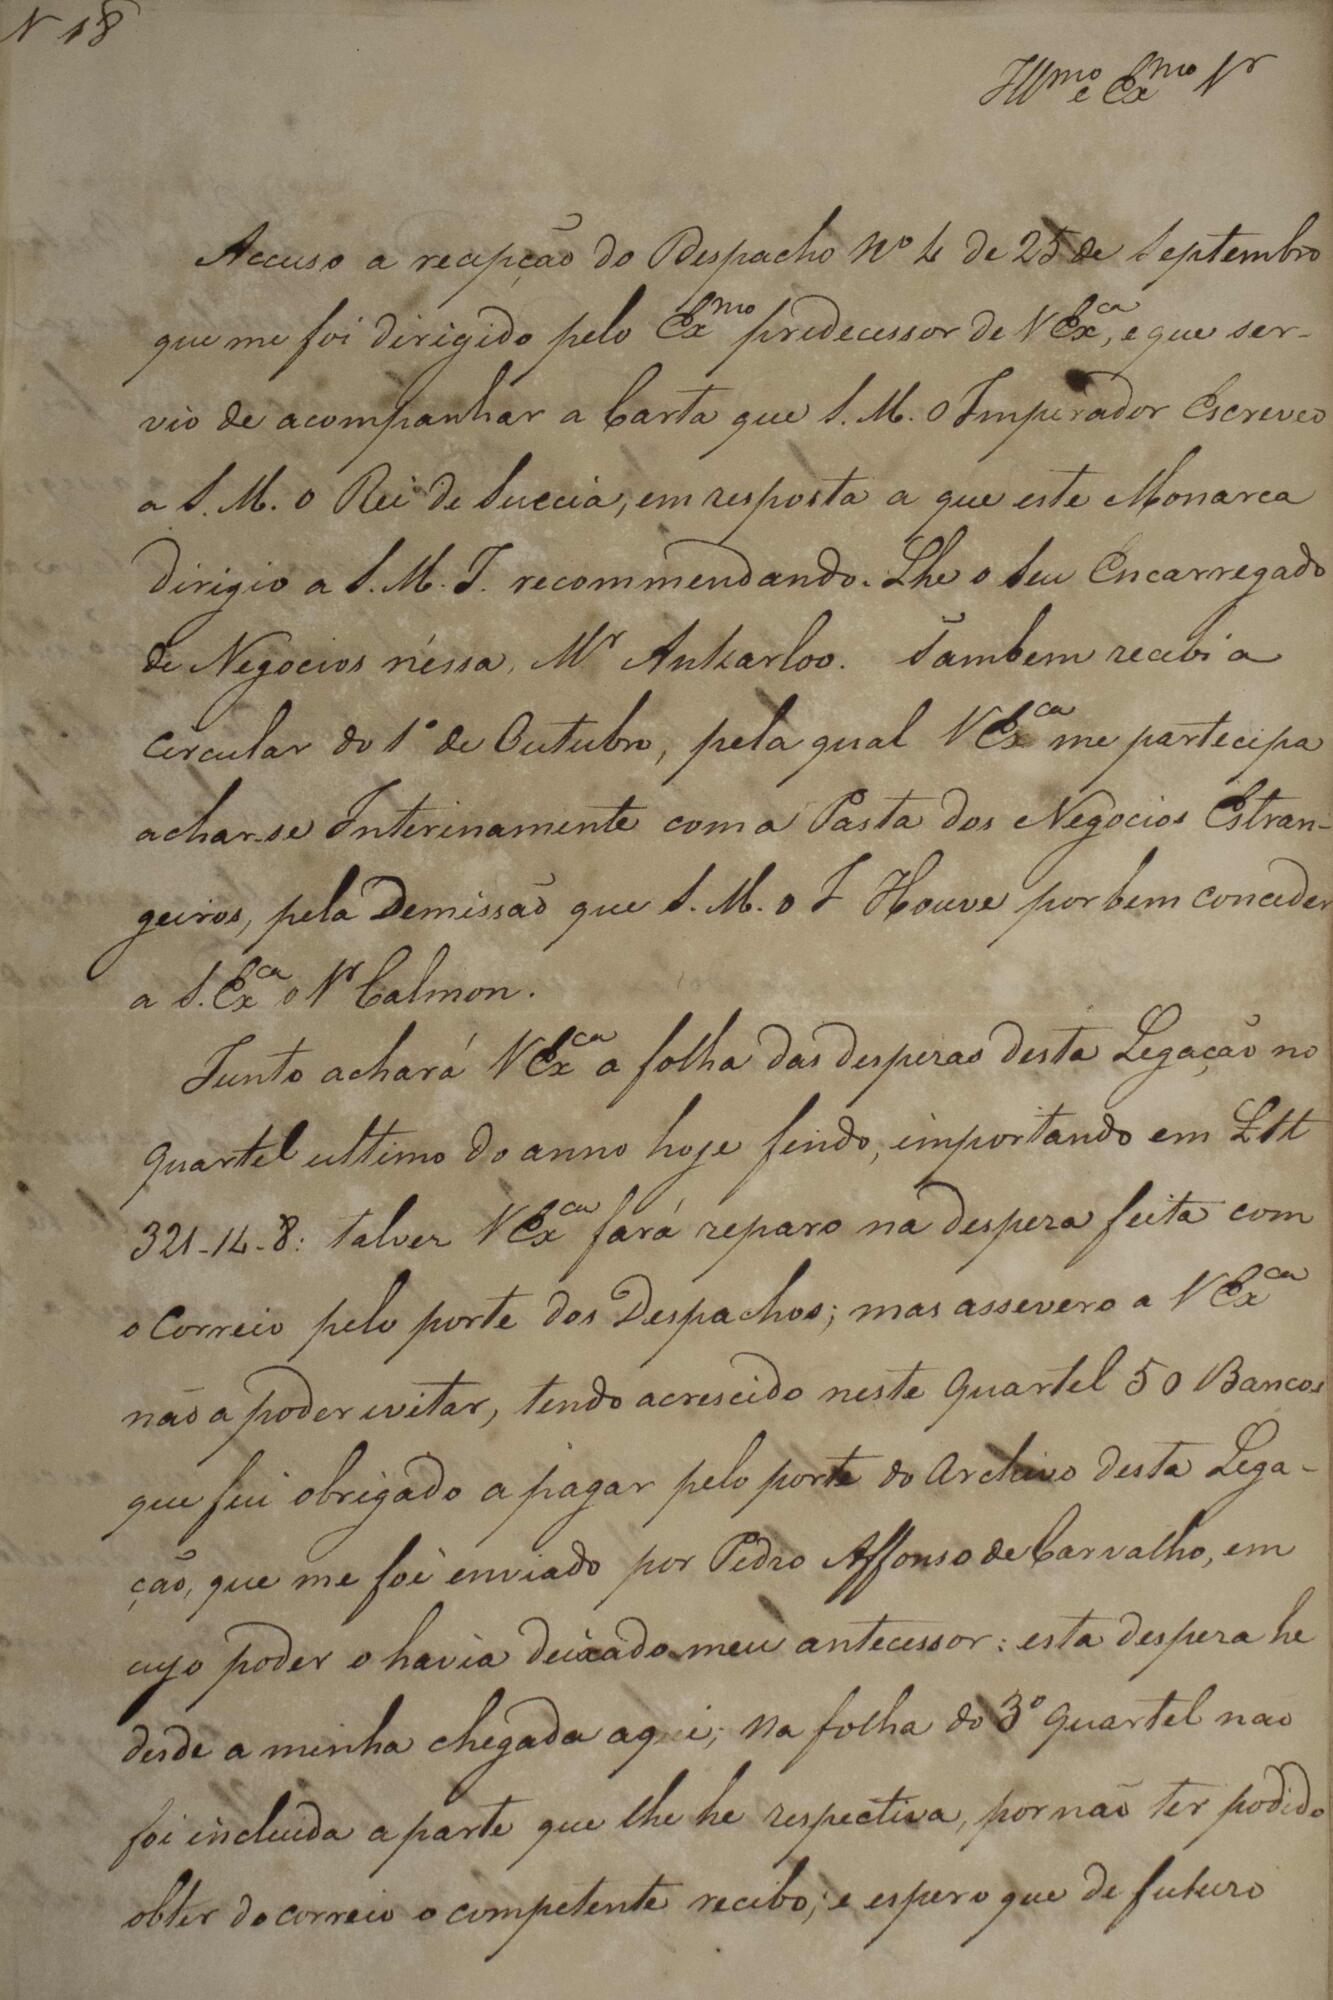 N 18
Illmo e Exmo Sr
Accuso a recepção do Despacho No 4 de 25 de Septembro
que me foi dirigido pelo Exmo predecessor de VExca, e que ser-
vio de acompanhar a Carta que S. M. o Imperador Escreveo
a S. M. o Rei de Suecia, em resposta a que este Monarca
dirigio a S. M. I. recommendando-Lhe o Seu Encarregado
de Negocios néssa, Mr Ankarloo. Tambem recebi a
circular do 1o de Outubro, pela qual VExca me partecipa
achar-se Interinamente com a Pasta dos Negocios Estran-
geiros, pela Demissão que S. M. o I Houve por bem conceder
a S. Exca o Sr Calmon.
Junto achará VExca a folha das despezas desta Legação no
quartel ultimo do anno hoje findo, importando em
321-14-8: talvez VExca fará reparo na despeza feita com
o Correio pelo porte dos Despachos; mas assevero a VExca
não a poder evitar, tendo acrescido neste quartel 50 Bancos
que fui obrigado a pagar pelo porte do Archivo desta Lega-
ção, que me foi enviado por Pedro Affonso de Carvalho, em
cujo poder o havia deixado meu antecessor: esta despeza he
desde a minha chegada aqui; na folha do 3o quartel nao
foi incluida a parte que lhe he respectiva, por não ter podido
obter do correio o competente recibo; e espero que de futuro